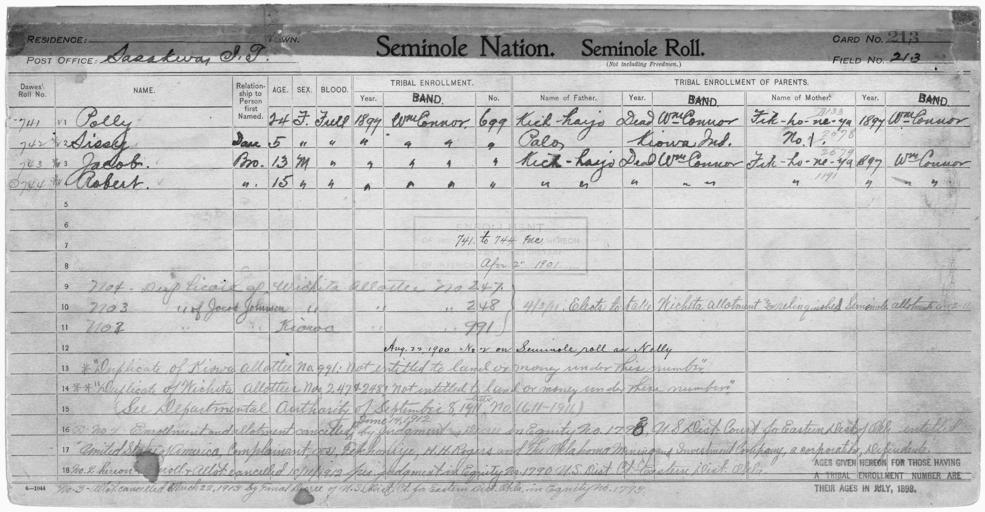 RESIDENCE: TOWN. Seminole Nation. Seminole Roll. CARD NO. 213
POST OFFICE: Sasakwa, I.T. (Not including Freedmen.) FIELD NO. 213
Dawes' Roll No. NAME. Relationship to Person first Named. AGE. SEX. BLOOD. TRIBAL ENROLLMENT. TRIBAL ENROLLMENT OF PARENTS.
Year. BAND. No. Name of Father. Year. BAND. Name of Mother. Year. BAND.
741 1 Polly 24 F Full 1897 Wm Connor 699 Kich-haijo Dead Wm Connor Fik-ho-ne-ya 1897 Wm Connor
742 2 Sissy 5 " " " " " " Kiowa Ind. No. 1
743 3 Jacob. Bro. 13 M " " " " Kich-haijo Dead Wm Connor Fik-ho-ne-ya 1897 Wm Connor
744 4 Robert. " 15 " " " " " " " " " " " " " "
5
6
7 741 to 744 Inc.
8 Apr 2 1901.
9 No 4 - Duplicate of Wichita Allottee No 247
10 No 3 " of Jacob Johnson " " " 248 Elects to take Wichita Allotment & relinquished Seminole allotment
11 Kiowa " " 991
12 Aug. 22, 1900 - No 2 on Seminole roll as Nelly
13 * "Duplicate of Kiowa Allottee No. 991: Not entitled to land or money under this number"
14 ** "Duplicate of Wichita Allottees Nos 247 & 248: Not entitled to land or money under these numbers"
15 (See Departmental Authority of September 8 1911, No. 1611-1911)
16 Enrollment and allotment cancelled June 14, 1912 by judgment in Equity No. U.S. Dist. Court for Eastern Dist. of Okla. entitled
17 "United States of America, Complainant, vs. H. H. Rogers and The Oklahoma Mining and Investment Company, a corporation, Defendants.
18 No. 2 enroll & Allot. cancelled per judgment in Equity No. 1790 U.S. Dist. Ct. Eastern Dist. Okla.
AGES GIVEN HEREON FOR THOSE HAVING
A TRIBAL ENROLLMENT NUMBER ARE
THEIR AGES IN JULY, 1898.
No. 3 - Allot. cancelled March 1913 by final decree of U.S. Dist. Ct. for Eastern Dist. Okla. in Equity No. 1793